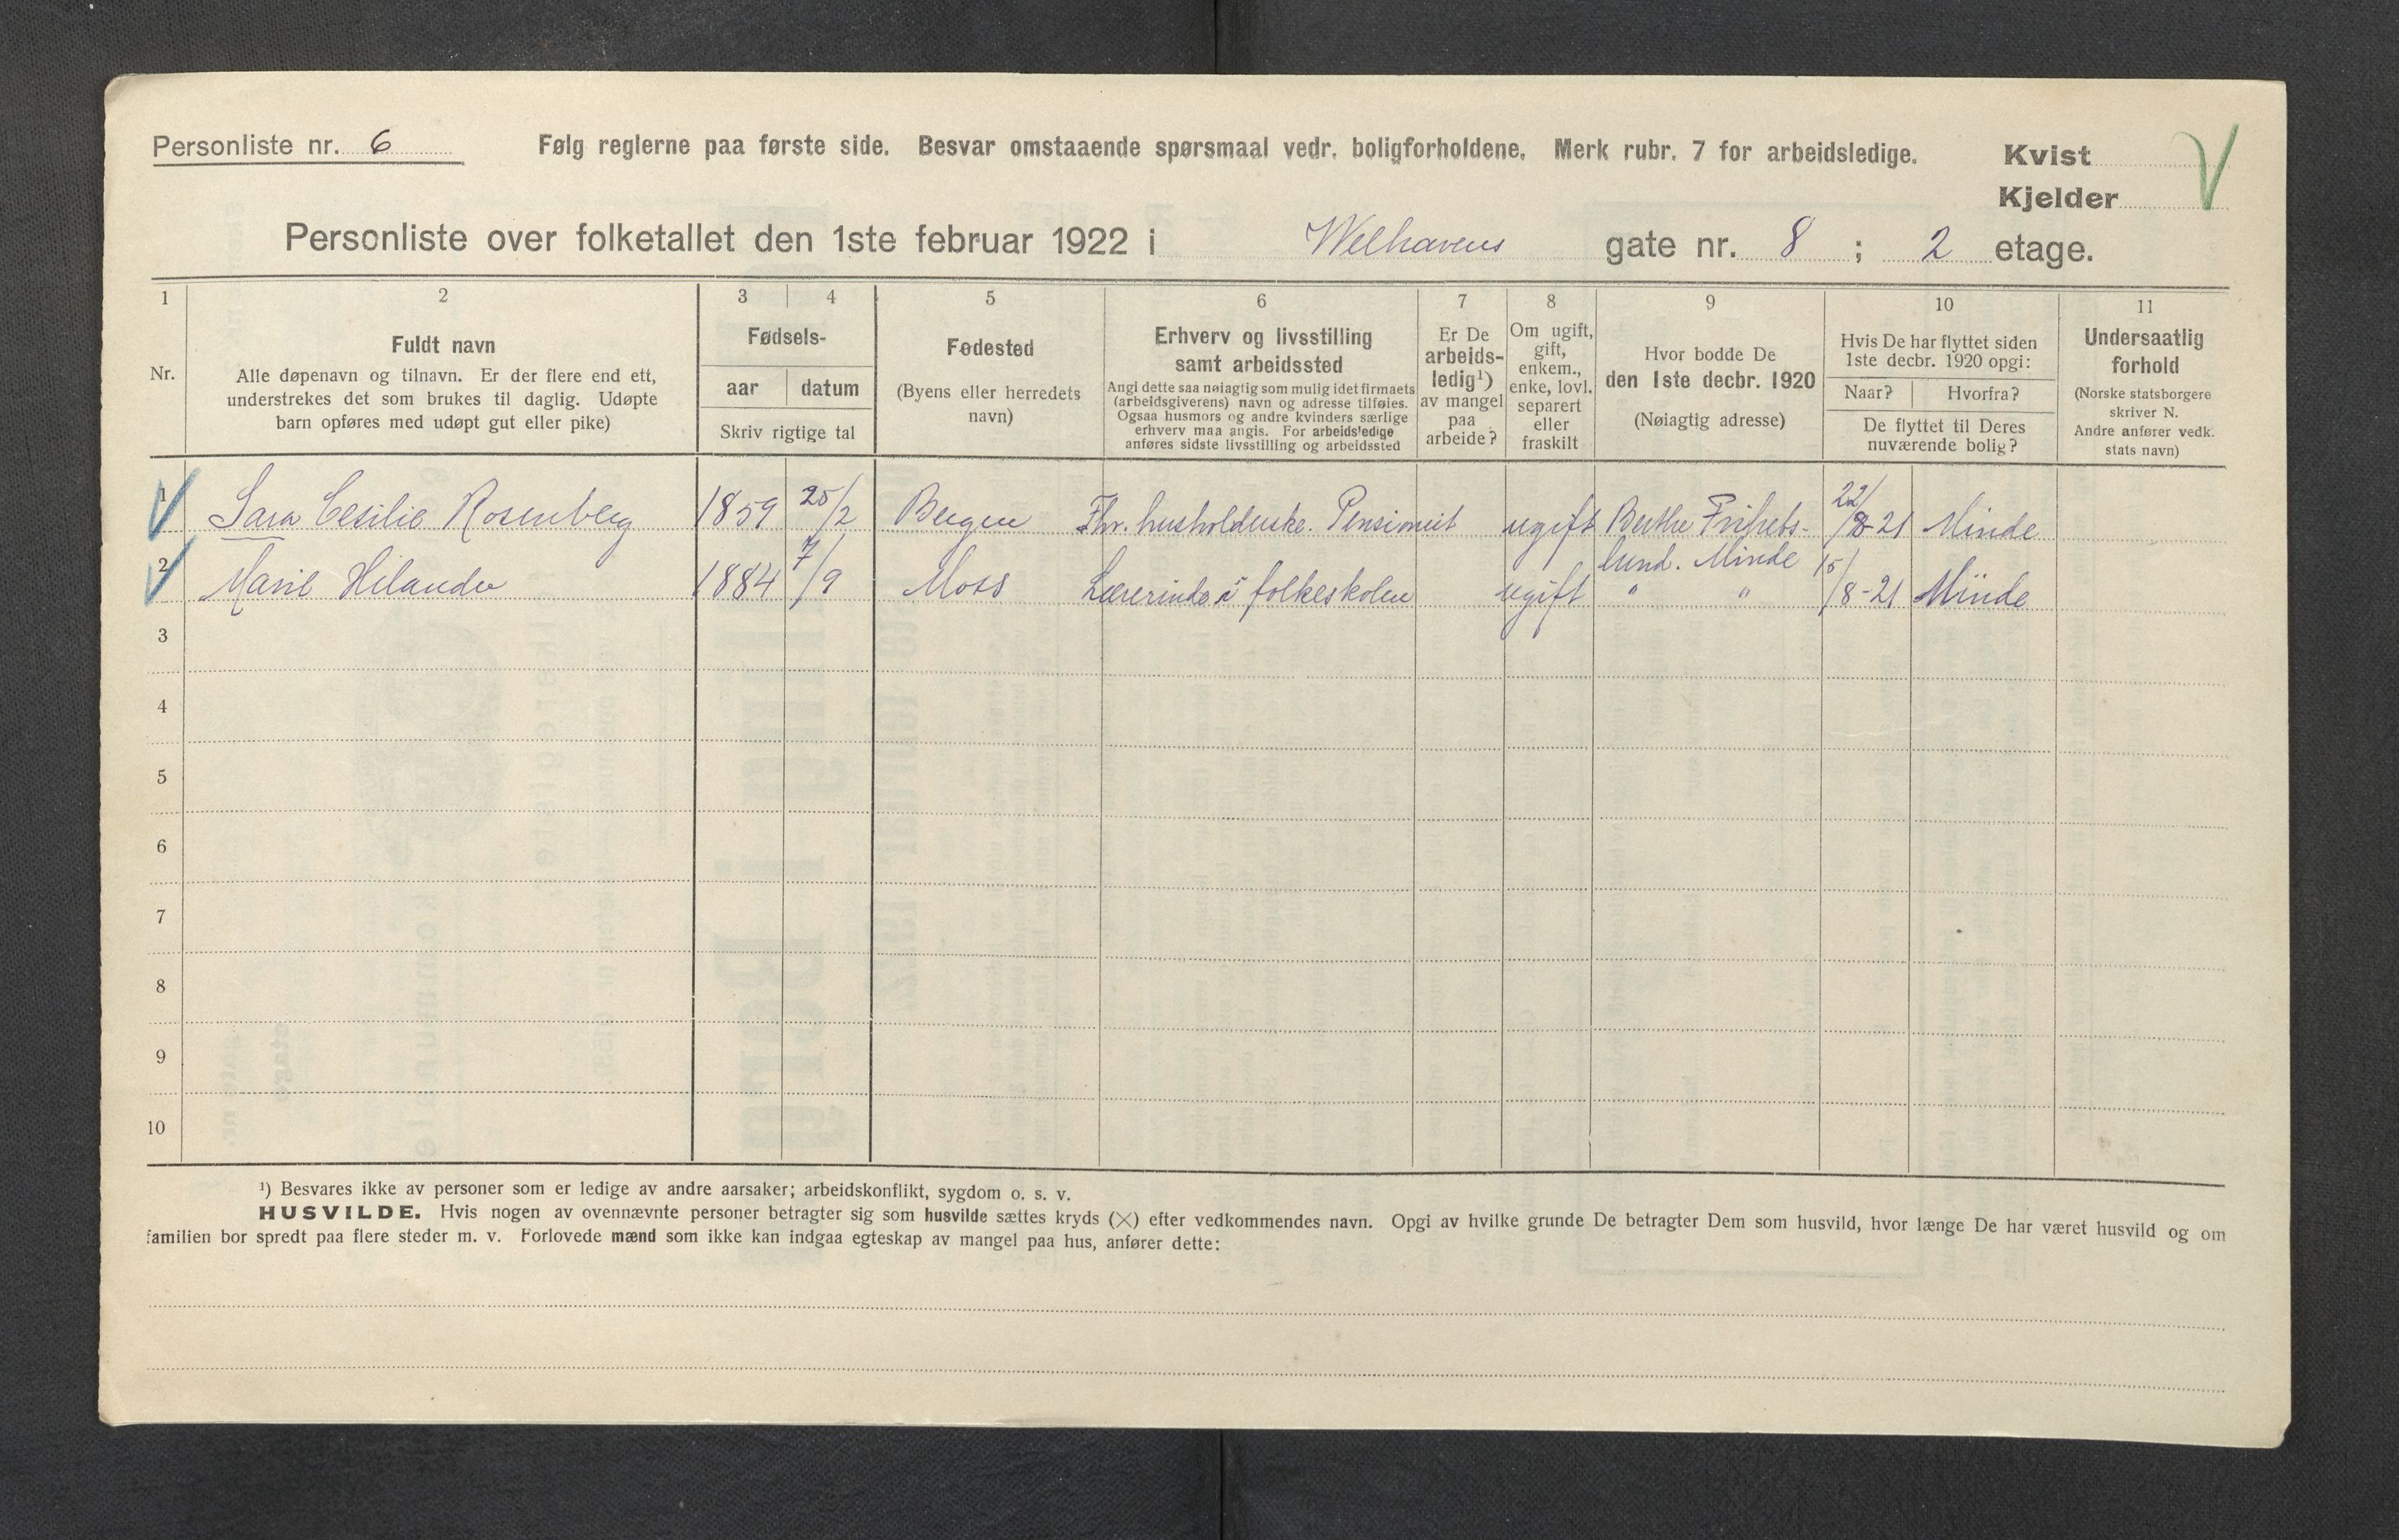 Personliste nr. 6
Følg reglerne paa første side. Besvar omstaaende spørsmaal vedr. boligforholdene. Merk rubr. 7 for arbeidsledige.
Kvist
Kjelder
Personliste over folketallet den 1ste februar 1922 i Welhavens gate nr. 8 ; 2 etage.
1 2 3 4 5 6 7 8 9 10 11
Nr.
Fuldt navn
Alle døpenavn og tilnavn. Er der flere end ett,
understrekes det som brukes til daglig. Udøpte
barn opføres med udøpt gut eller pike)
Fødsels-
aar datum
Skriv rigtige tal
Fødested
(Byens eller herredets
navn)
Erhverv og livsstilling
samt arbeidssted
Angi dette saa nøiagtig som mulig idet firmaets
(arbeidsgiverens) navn og adresse tilføies.
Ogsaa husmors og andre kvinders særlige
erhverv maa angis. For arbeidsledige
anføres sidste livsstilling og arbeidssted
Er De
arbeids-
ledig¹)
av mangel
paa
arbeide?
Om ugift,
gift,
enkem.,
enke, lovl.
separert
eller
fraskilt
Hvor bodde De
den 1ste decbr. 1920
(Nøiagtig adresse)
Hvis De har flyttet siden
1ste decbr. 1920 opgi:
Naar? Hvorfra?
De flyttet til Deres
nuværende bolig?
Undersaatlig
forhold
(Norske statsborgere
skriver N.
Andre anfører vedk.
stats navn)
1 Sara Cesilie Rosenberg 1859 25/2 Bergen Fhv. husholderske. Pensioneret ugift Berthe 22/8-21 Minde
lund. Minde
2 Marie Hilander 1884 7/9 Moss Lærerinde i folkeskolen ugift " " 15/8-21 Minde
3
4
5
6
7
8
9
10
¹) Besvares ikke av personer som er ledige av andre aarsaker; arbeidskonflikt, sygdom o. s. v.
HUSVILDE. Hvis nogen av ovennævnte personer betragter sig som husvilde sættes kryds (×) efter vedkommendes navn. Opgi av hvilke grunde De betragter Dem som husvild, hvor længe De har været husvild og om
familien bor spredt paa flere steder m. v. Forlovede mænd som ikke kan indgaa egteskap av mangel paa hus, anfører dette: